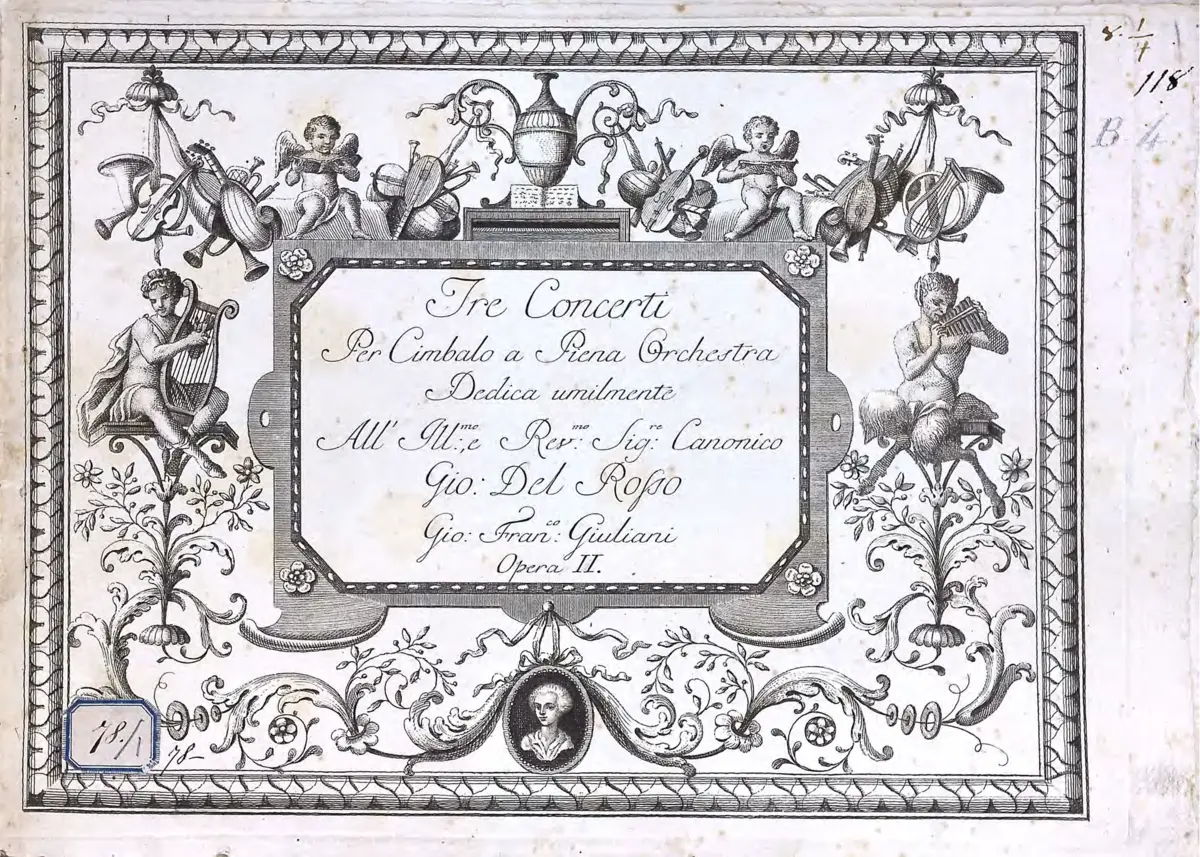 8. 1/4
118
B. 4.
Tre Concerti
Per Cimbalo a Piena Orchestra
Dedica umilmente
All' Ill:mo, e Rev:mo Sig:re Canonico
Gio: Del Rosso
Gio: Fran:co Giuliani
Opera II.
78./1
78-